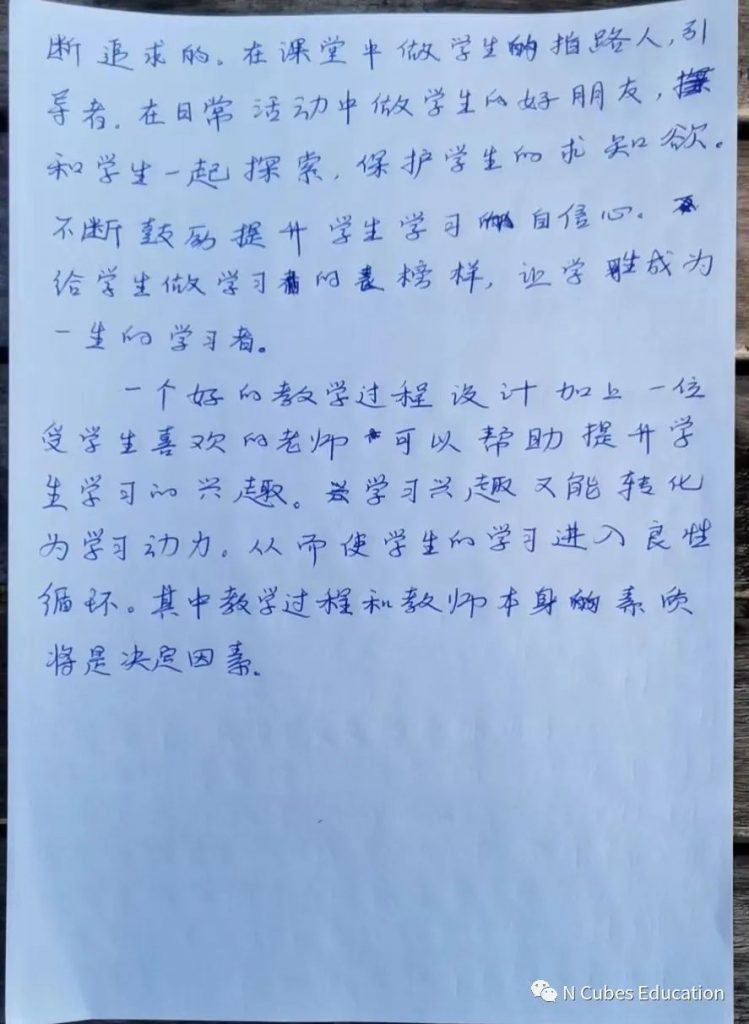 断追求的。在课堂中做学生的拍路人,引
导者。在日常活动中做学生的好朋友,
和学生一起探索,保护学生的求知欲。
不断鼓励提升学生学习的自信心。
给学生做学习的榜样,让学生成为
一生的学习者。
一个好的教学过程设计加上一位
受学生喜欢的老师可以帮助提升学
生学习的兴趣。学习兴趣又能转化
为学习动力。从而使学生的学习进入良性
循环。其中教学过程和教师本身的素质
将是决定因素。
N Cubes Education